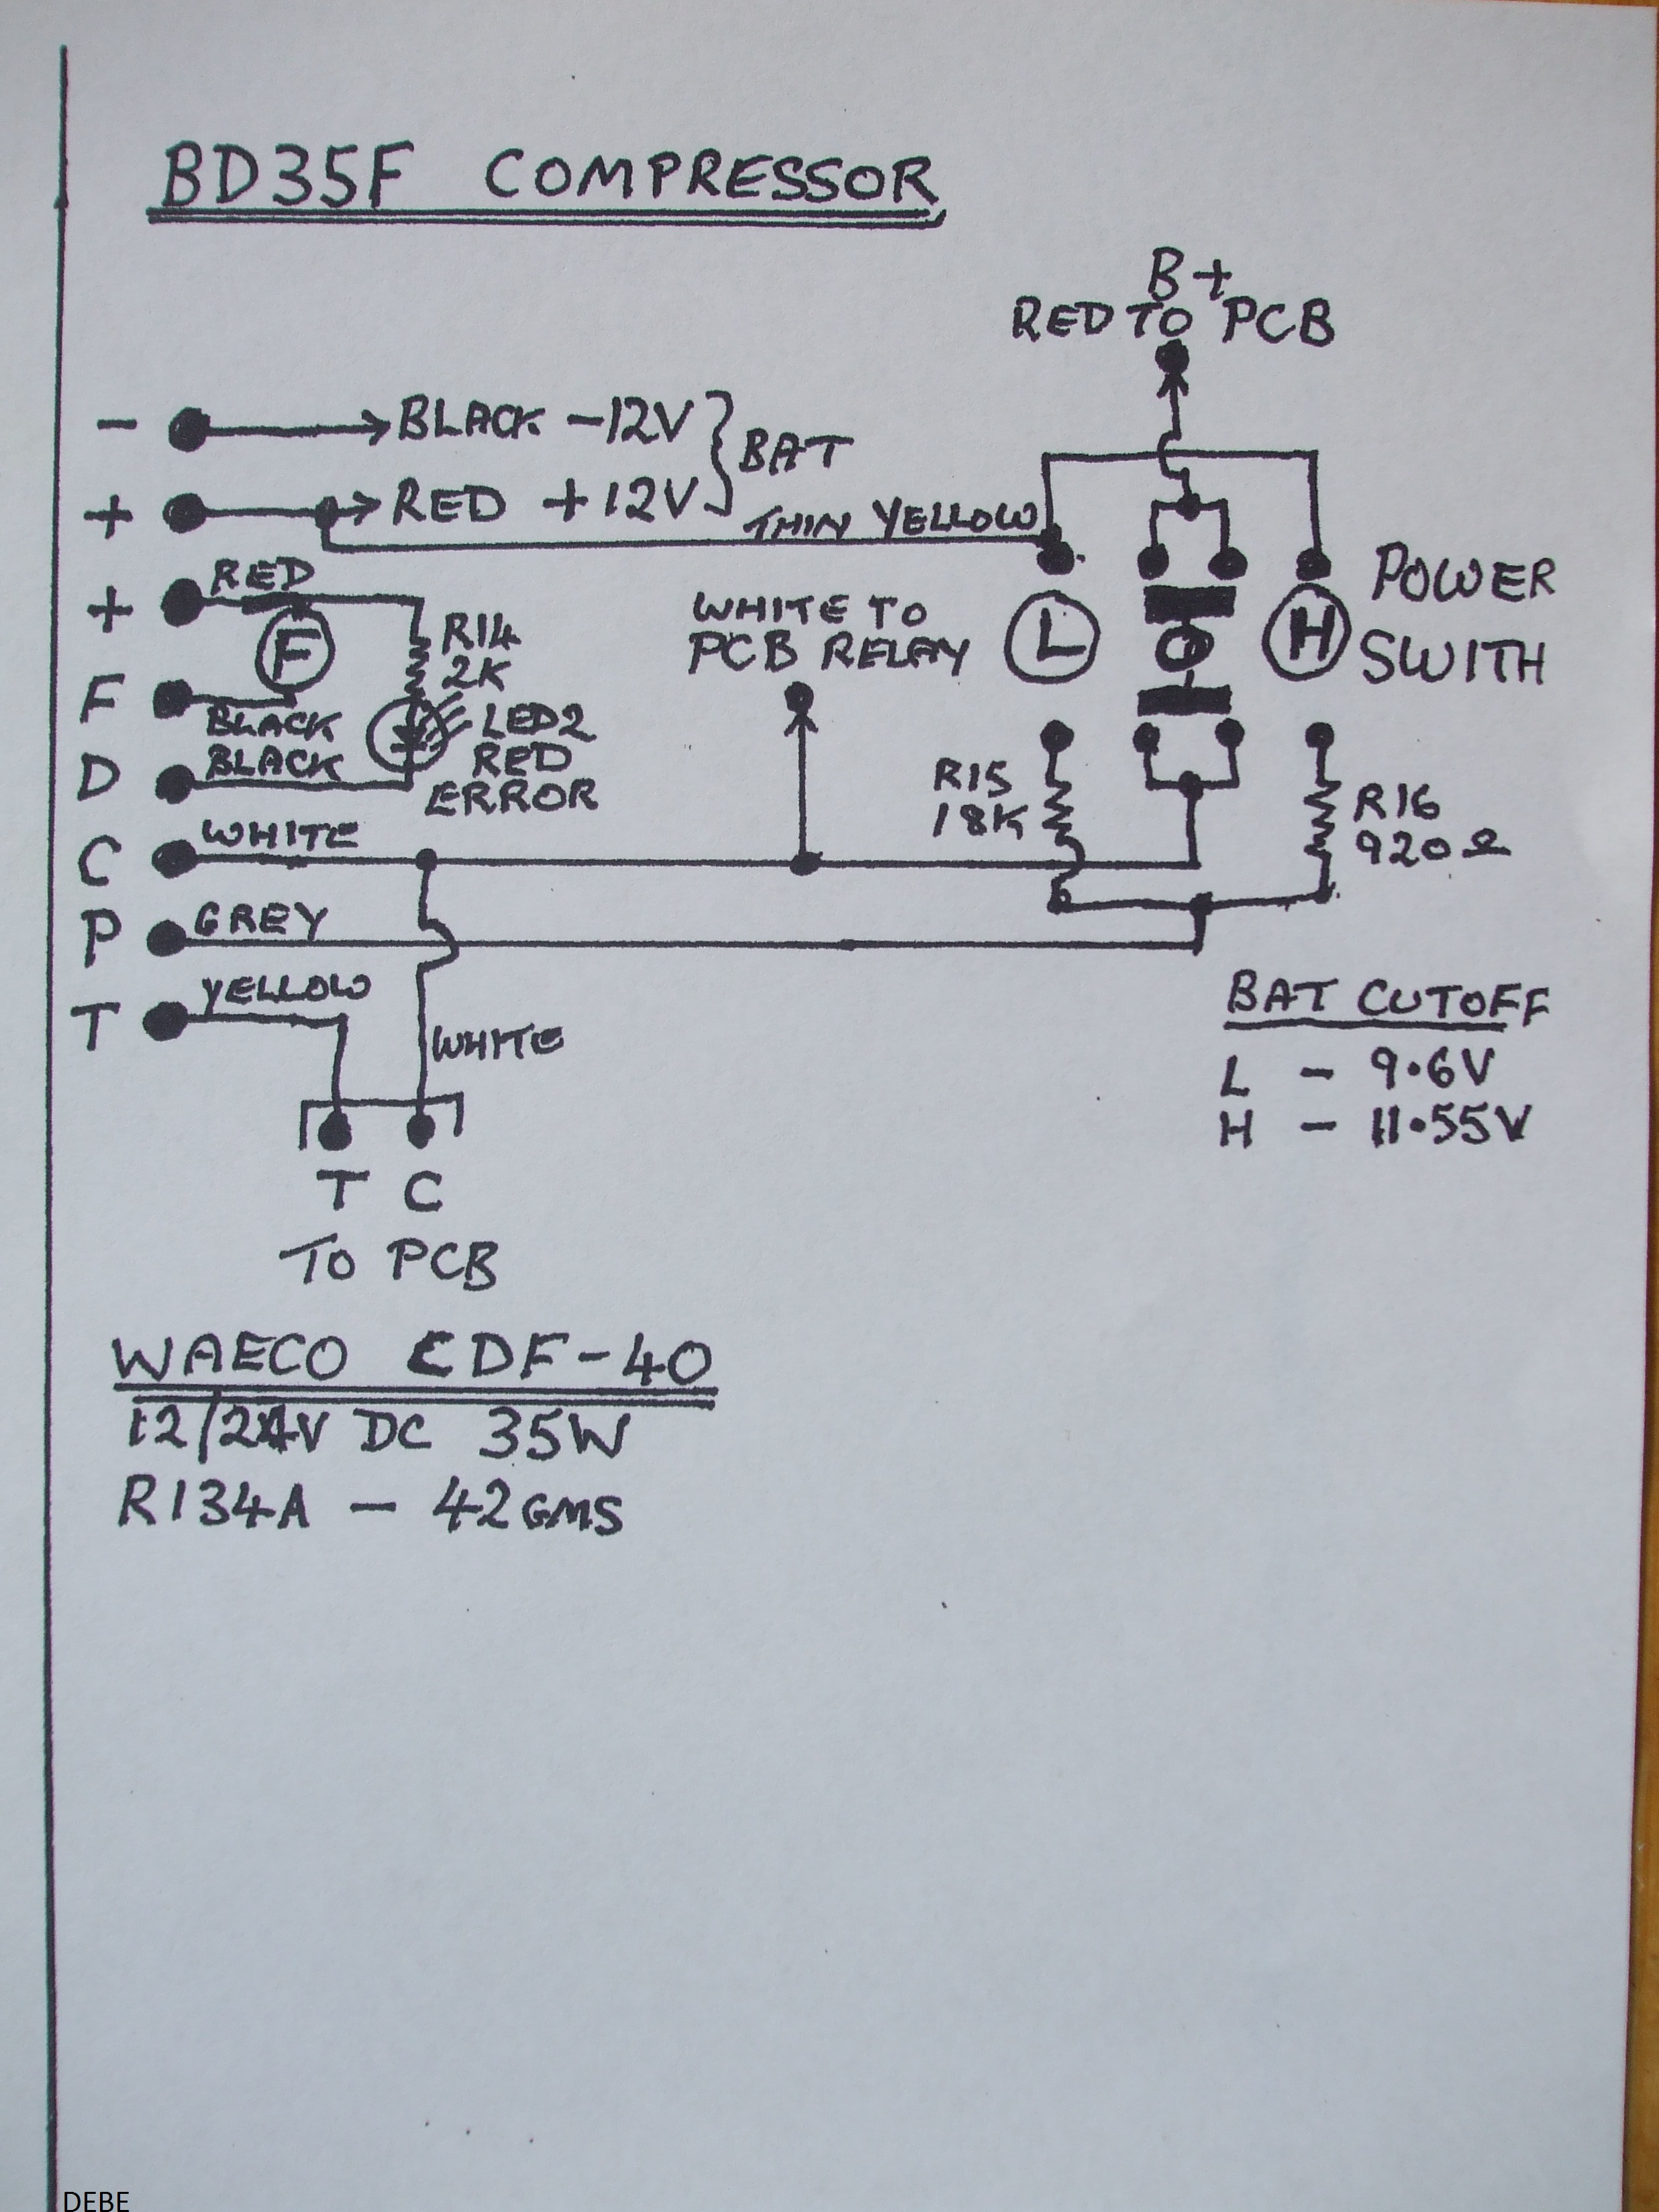 BD35F COMPRESSOR
B+
RED TO PCB
- BLACK -12V
BAT
+ RED +12V
THIN YELLOW
+ RED
F
R14
2K
WHITE TO
PCB RELAY
L
O
H
POWER
SWITH
F
BLACK
LED2
RED
ERROR
D
BLACK
R15
18K
R16
920Ω
C WHITE
P GREY
T YELLOW
WHITE
BAT CUTOFF
L - 9.6V
H - 11.55V
T C
TO PCB
WAECO CDF-40
12/24V DC 35W
R134A - 42GMS
DEBE